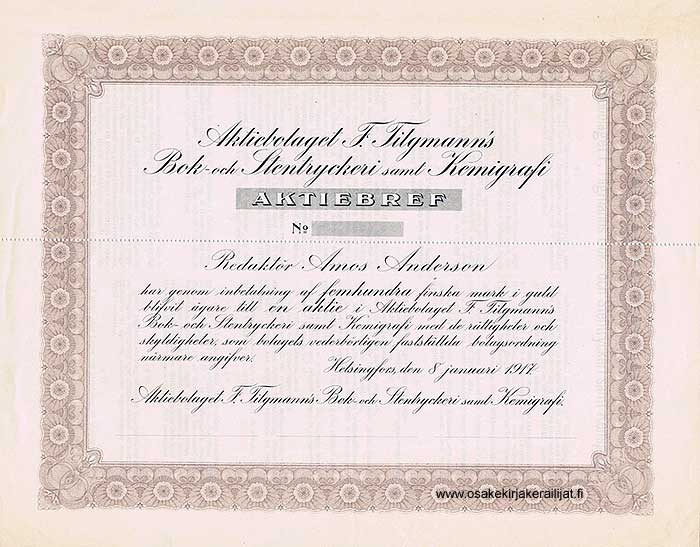 Aktiebolaget F. Tilgmann's
Bok- och Stentryckeri samt Kemigrafi
AKTIEBREF
No
Redaktör Amos Anderson
har genom inbetalning af femhundra finska mark i guld
blifvit ägare till en aktie i Aktiebolaget F. Tilgmann's
Bok- och Stentryckeri samt Kemigrafi med de rättigheter och
skyldigheter, som bolagets vederbörligen fastställda bolagsordning
närmare angifver.
Helsingfors, den 8 januari 1917.
Aktiebolaget F. Tilgmann's Bok- och Stentryckeri samt Kemigrafi.
www.osakekirjakerailijat.fi